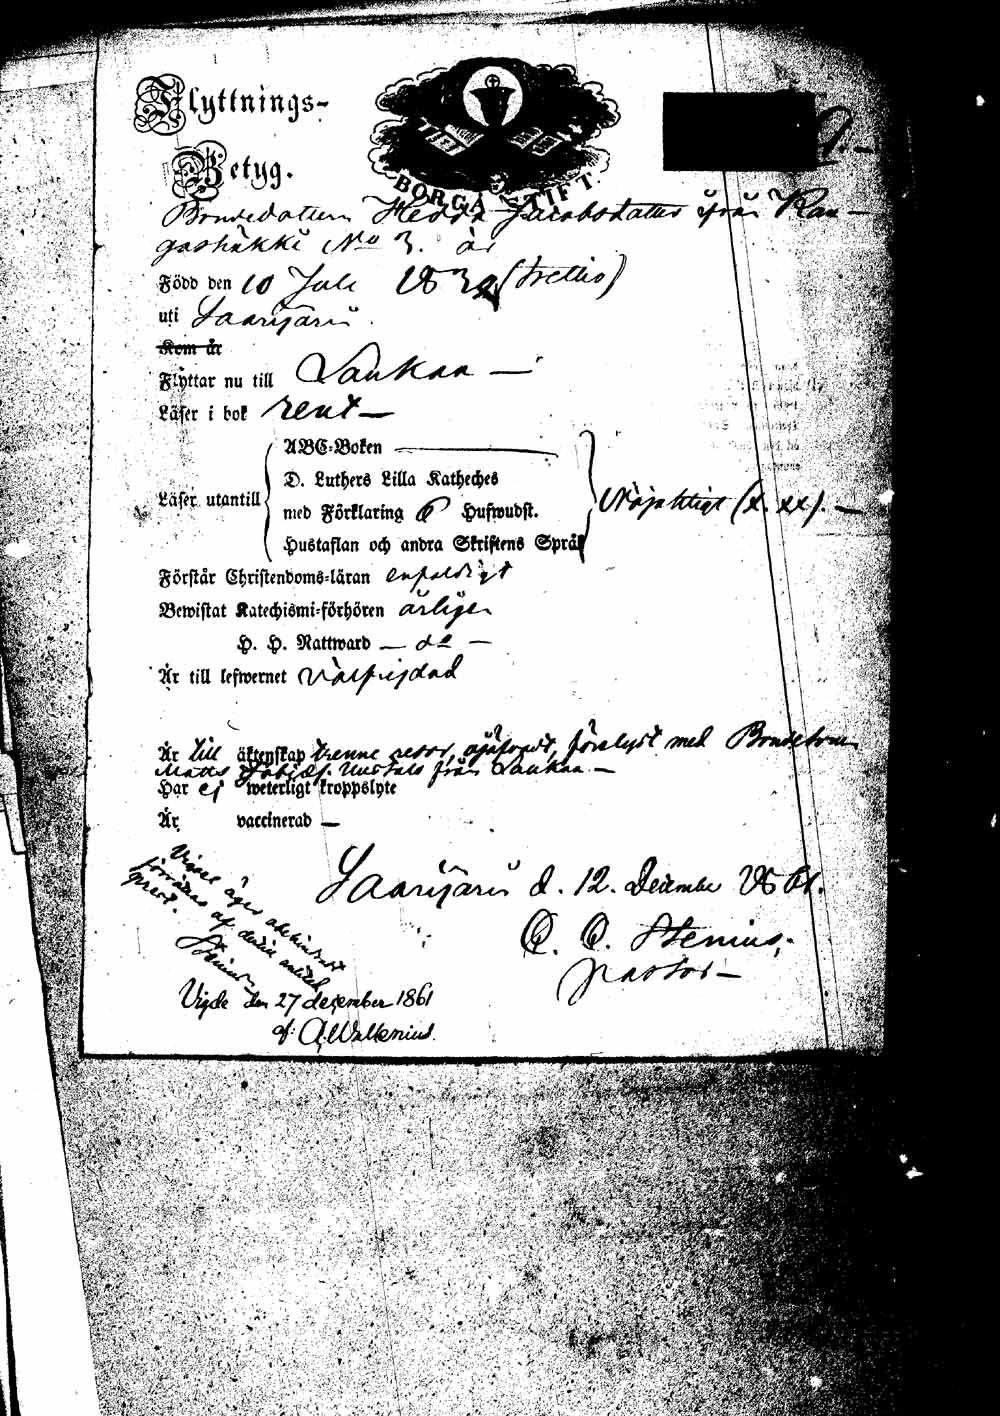 Flyttnings-
Betyg.
BORGÅ STIFT.
Bondedottern Hedda Jacobsdotter från Kan-
gashäkki No 3. är
Född den 10 Juli 1830 (trettio)
uti Saarijärvi
Kom år
Flyttar nu till Laukaa —
Läser i bok rent —
Läser utantill
ABC-Boken —
D. Luthers Lilla Katheches
med Förklaring 6 Hufwudst.
Hustaflan och andra Skriftens Språk
Nöjaktigt (x. xx). —
Förstår Christendoms-läran enfaldigt
Bewistat Katechismi-förhören årligen
H. H. Nattward — do —
Är till lefwernet välfrejdad
Är till äktenskap trenne resor, ojäfvadt, förelyst med Bondeson
Matts från Laukaa. —
Har ej weterligt kroppslyte
Är vaccinerad —
Vigsel äger obehindradt
förrättas af derom anlitad
prest.
Stenius
Saarijärvi d. 12. December 1861.
C. C. Stenius.
pastor —
Vigde den 27 december 1861
af: A. Wallenius.